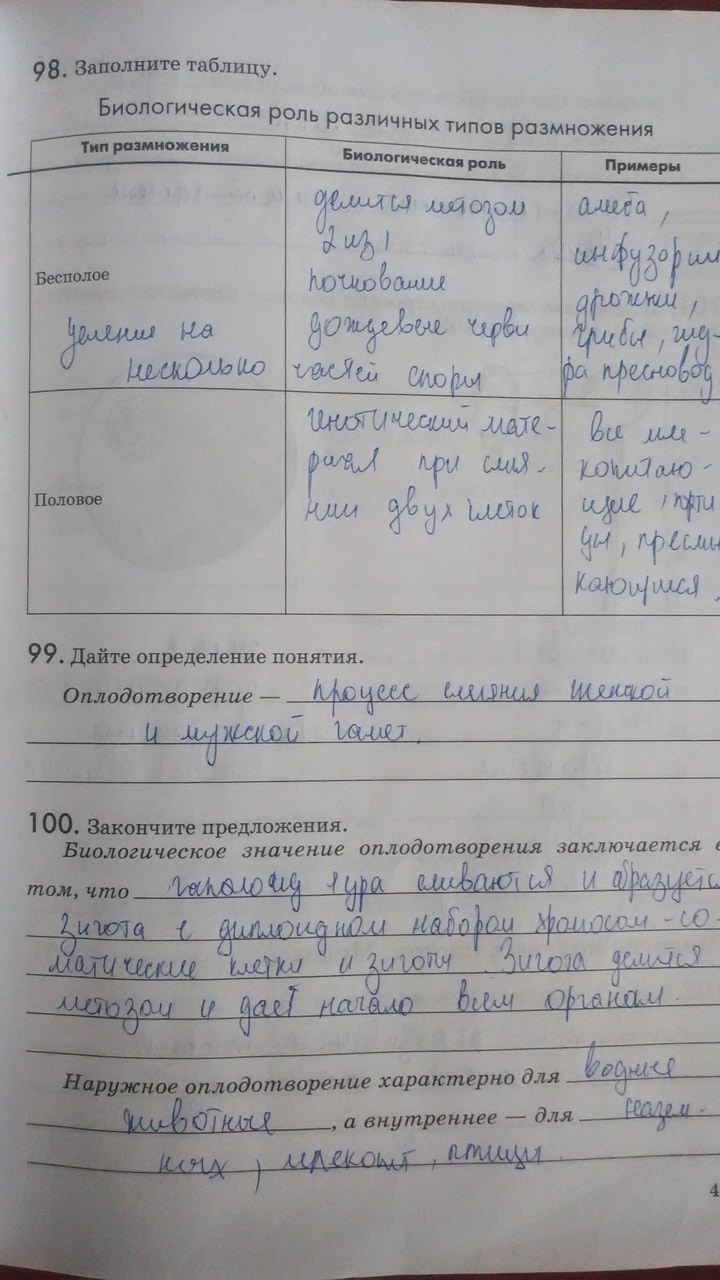 98. Заполните таблицу.
Биологическая роль различных типов размножения
Тип размножения
Биологическая роль
Примеры
Бесполое
деление на
несколько
делится метозом
2 из 1
почкование
дождевые черви
частей споры
амеба,
инфузории
дрожжи,
грибы, гид-
ра пресновод
Половое
генотический мате-
риал при слия-
нии двух клеток
все мле-
копитаю-
щие, пти
цы, пресмы
кающиеся.
99. Дайте определение понятия.
Оплодотворение — процесс слияния женской
и мужской гамет.
100. Закончите предложения.
Биологическое значение оплодотворения заключается в
том, что гаплоид ядра сливаются и образуется
Зигота с диплоидном набором хромосом -со-
матические клетки и зиготы. Зигота делится
метозом и дает начало всем органам.
Наружное оплодотворение характерно для водные
животные, а внутреннее — для назем-
ных, млекопит, птицы.
4